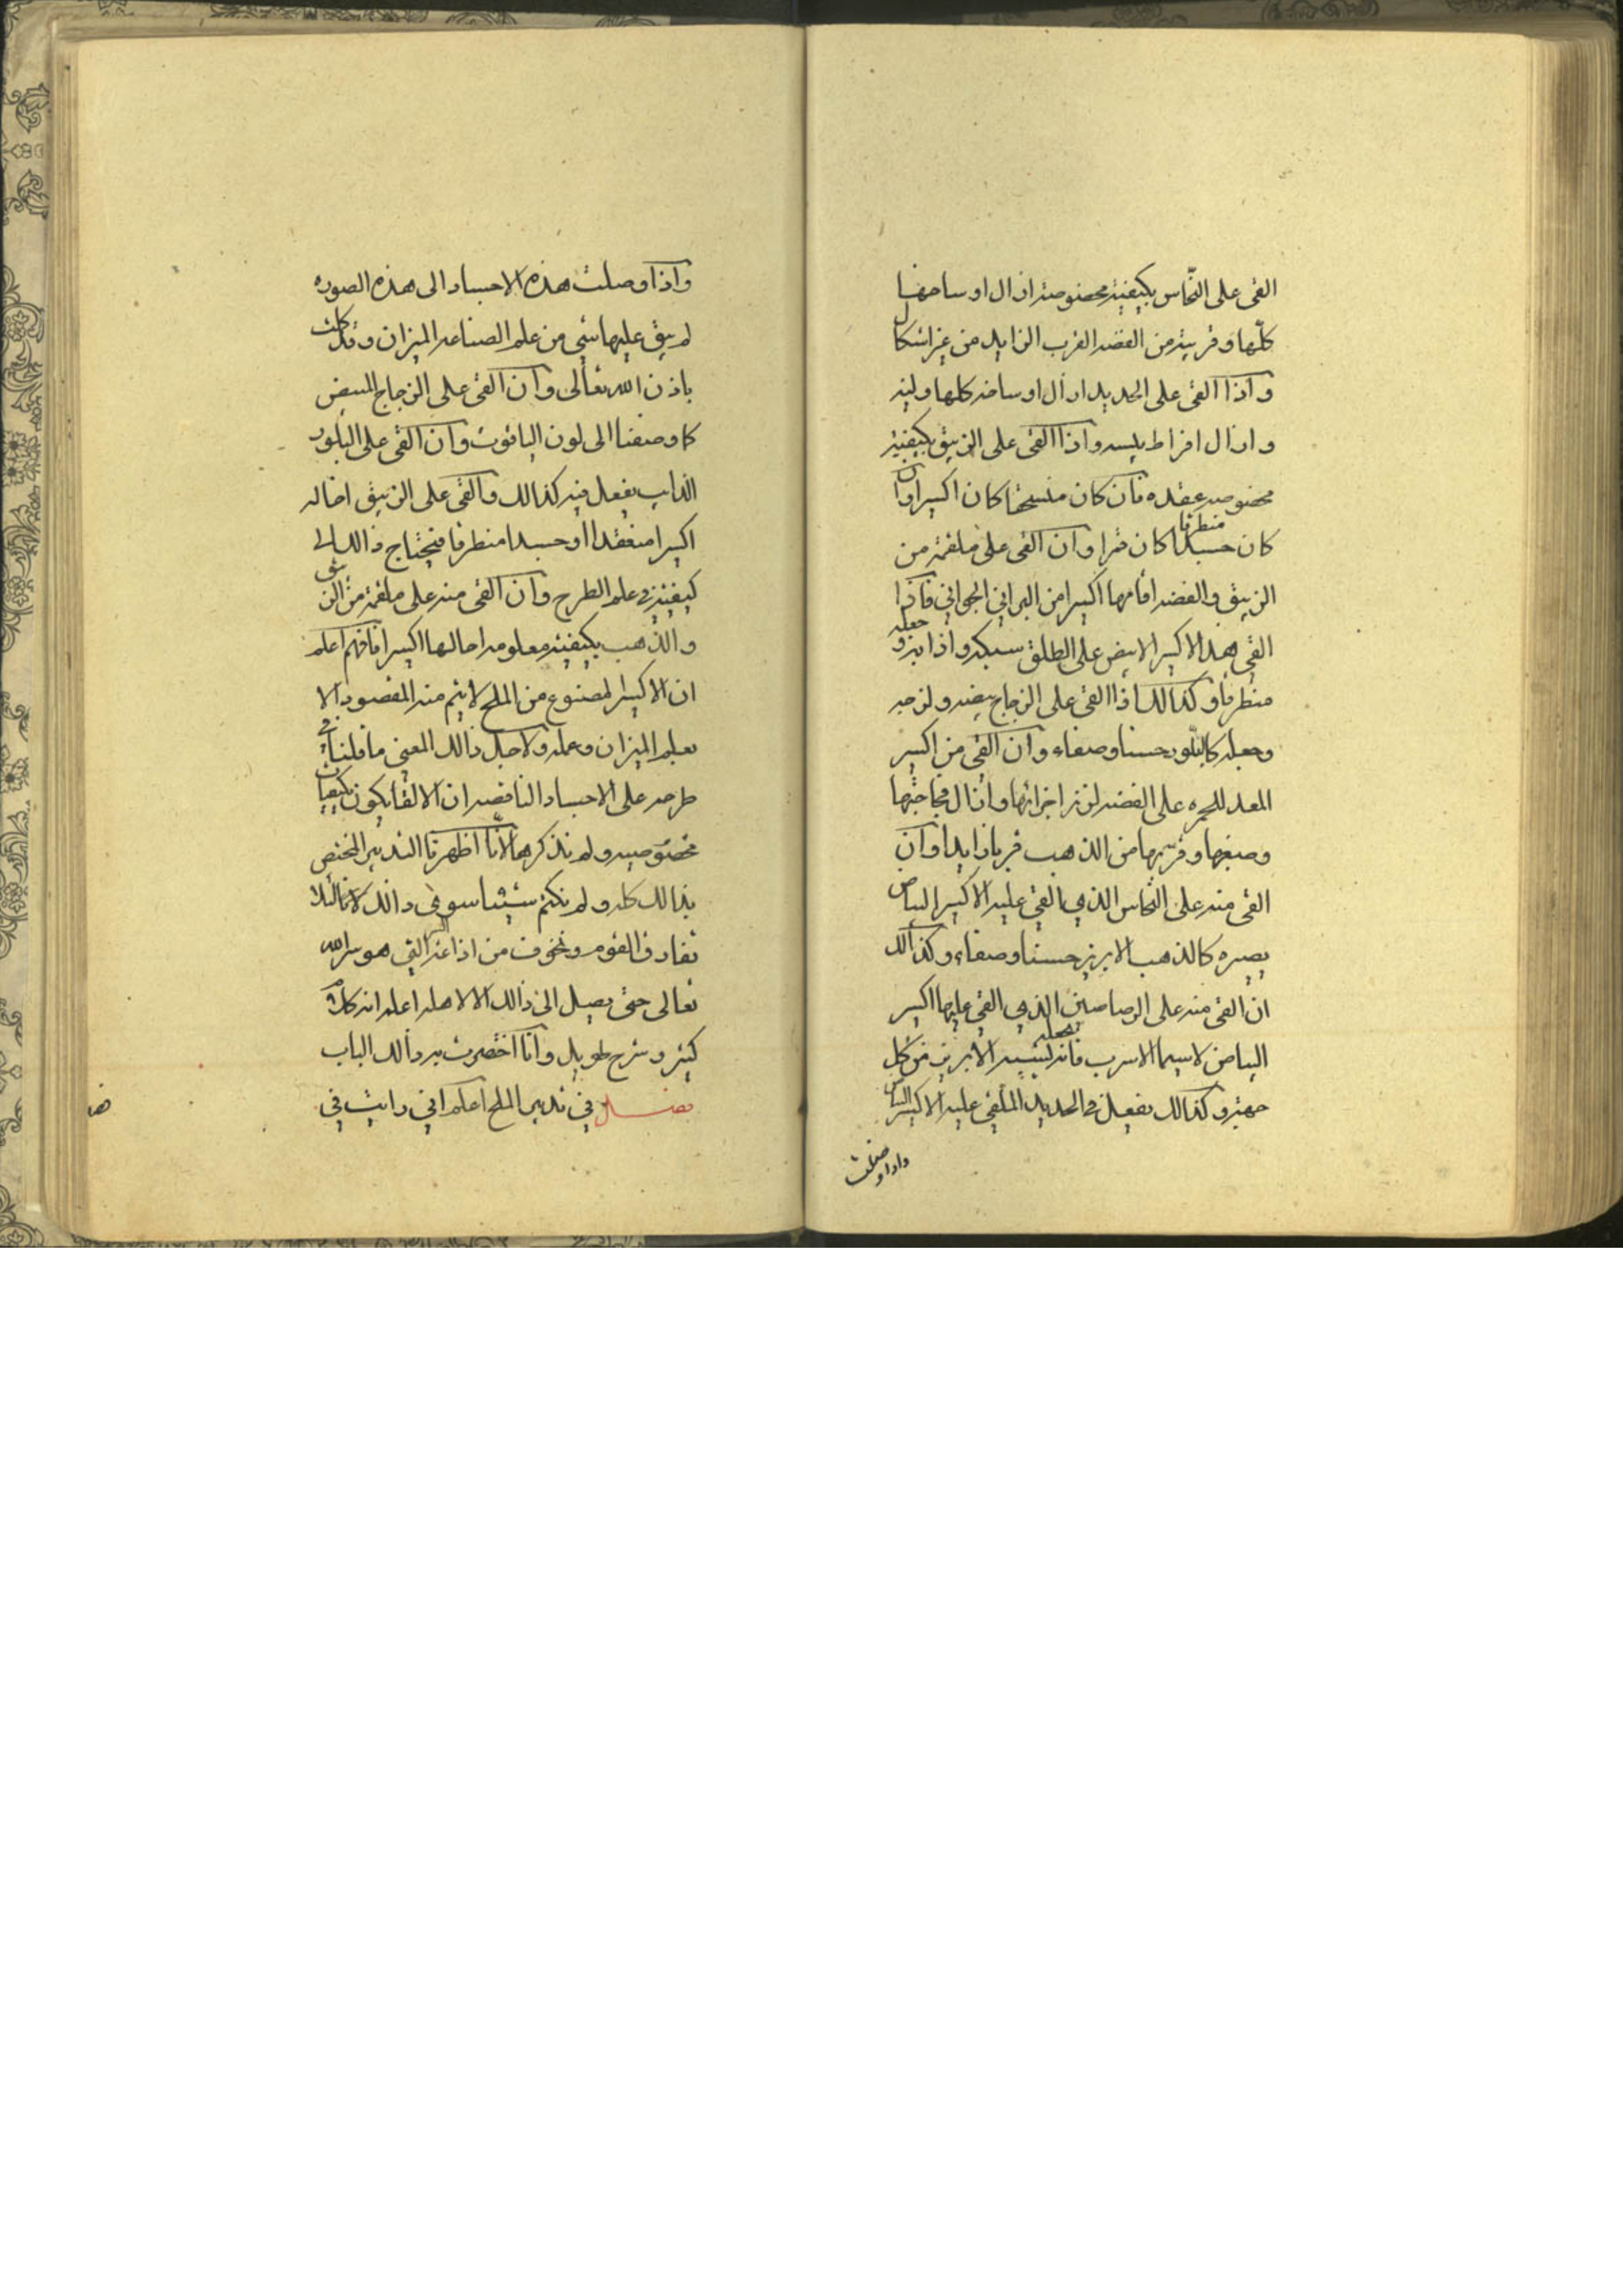 القى على النحاس بكيفية مخصوصة ازال اوساخها
كلها وقربته من الفضه القرب الزايد من غير اشكال
واذا القى على الحديد ازال اوساخه كلها ولينه
وازال افراط يبسه واذا القى على الزيبق بكيفية
مخصوصه عقده فان كان منسحقا كان اكسيرا وان
كان جسدا منطرقا كان قمرا وان القى على ملغمة من
الزيبق والفضه اقامها اكسيرا من البراني الجواني فاذا
القى هذا الاكسير الابيض على الطلق سبكه واذا به وجعله
منطرقا وكذالك اذا القى على الزجاج بيضه ولزجه
وجعله كالبلور حسنا وصفاء وان القى من اكسير
المعد للحمره على الفضه لزز اجزائها وازال فجاجتها
وصبغها وقربها من الذهب قربا زايدا وان
القى منه على النحاس الذي القى عليه الاكسير البياض
يصيره كالذهب الابريز حسنا وصفاء وكذالك
ان القى منه على الرصاصين الذي القى عليها اكسير
البياض لاسيما الاسرب فانه يجعله لشبيه الابريز من كل
جهة وكذالك يفعل في الحديد الملقى عليه الاكسير البياض
واذا وصلت
واذا وصلت هذه الاجساد الى هذه الصوره
لم يبق عليها شي من علم الصناعه الميزان وقد كملت
باذن الله تعالى وان القى على الزجاج المبيض
كما وصفنا الى لون الياقوت وان القى على البلور
الذايب يفعل فيه كذالك والقى على الزيبق احاله
اكسيرا منعقدا او جسدا منطرقا فيحتاج ذالك الى
كيفية في علم الطرح وان القى منه على ملغمة من الزيبق
والذهب بكيفية معلومه احالها اكسيرا فافهم اعلم
ان الاكسير المصنوع من الملح لا يتم منه المقصود الا
بعلم الميزان وعمله ولاجل ذالك المعنى ما قلنا في
طرحه على الاجساد الناقصه ان الالقا يكون بكيفيات
مخصوصيه ولم نذكرها لانا اظهرنا التدبير المختص
بذالك كله ولم نكتم شيئا سوى ذالك لانا لئلا
نفارق القوم ونخوف من اذاعة السر التي هو سر الله
تعالى حتى يصل الى ذالك الا لاهله اعلم انه كلام
كثير وشرح طويل وانا اختصرت به ذالك الباب
فصل في تدبير الملح اعلم اني رايت في